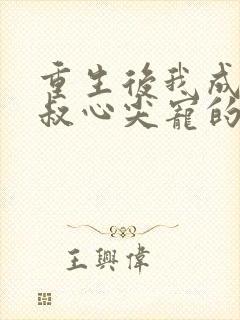 重生後我成
叔心尖寵的
王興偉